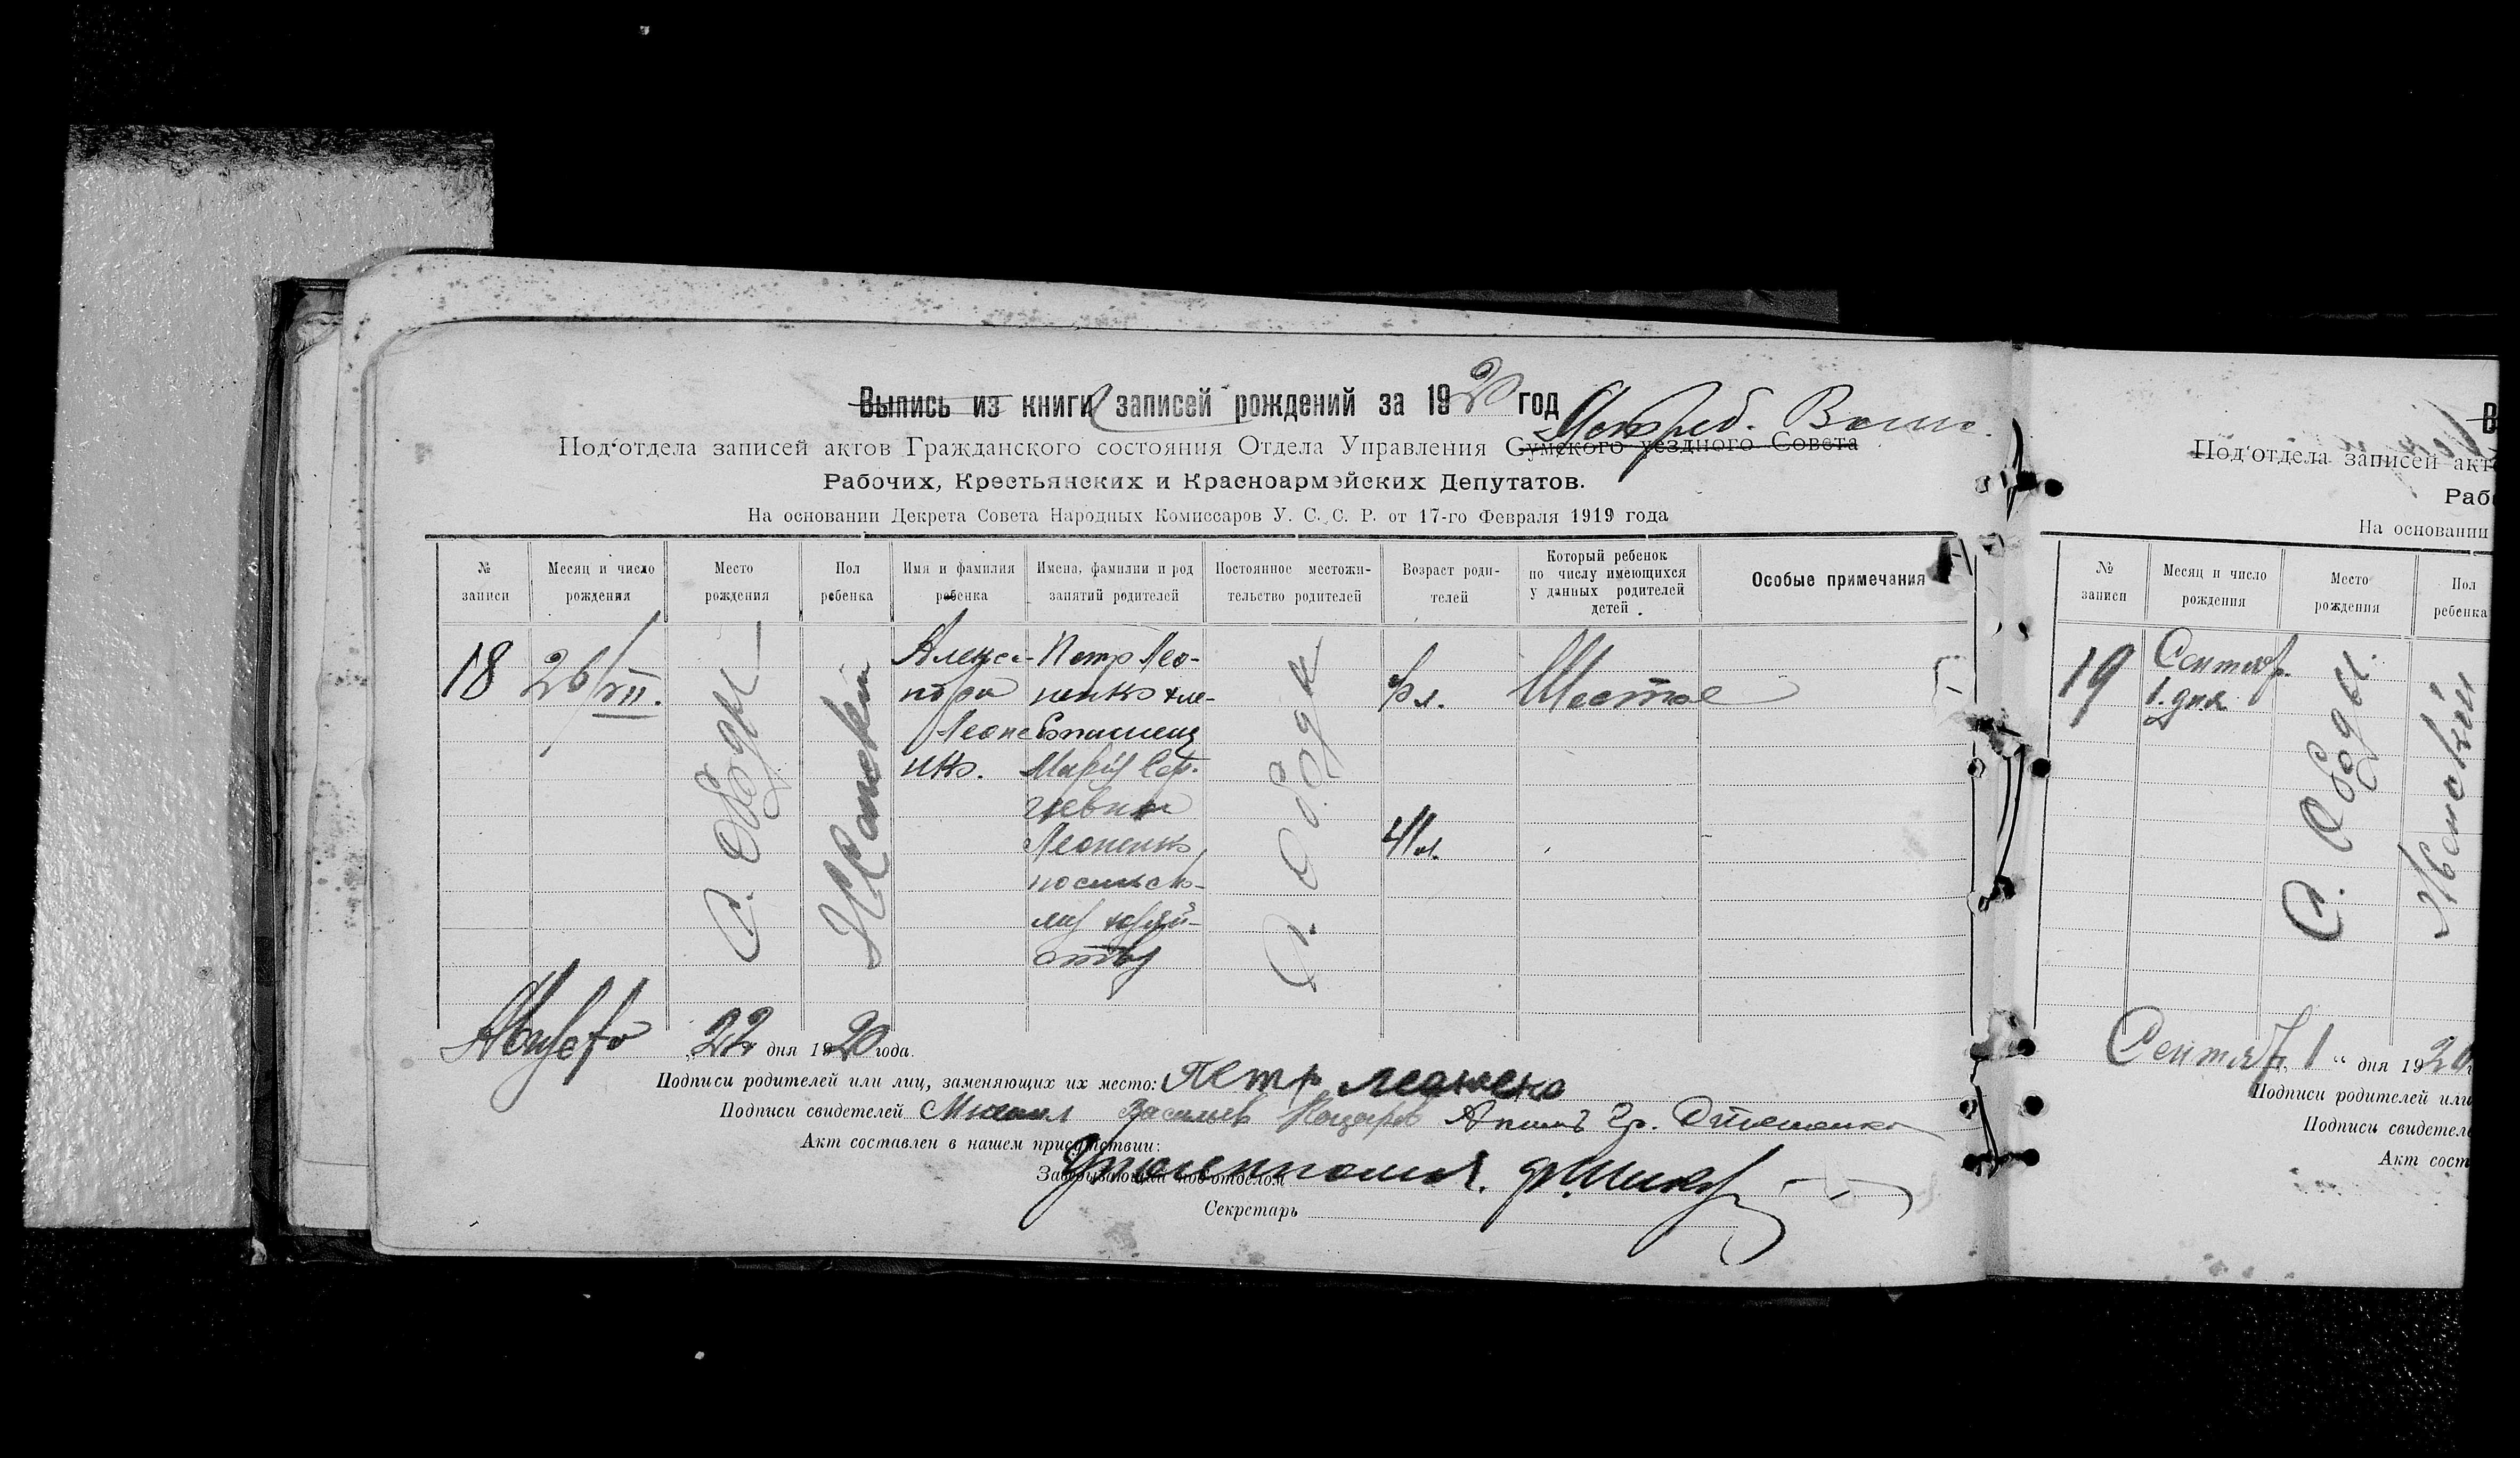 Выпись из книги записей рождений за 1920 год
Ястреб. Волис.
Под'отдела записей актов Гражданского состояния Отдела Управления Сумского уездного Совета
Рабочих, Крестьянских и Красноармейских Депутатов.
На основании Декрета Совета Народных Комиссаров У. С. С. Р. от 17-го Февраля 1919 года
№ записи
Месяц и число рождения
Место рождения
Пол ребенка
Имя и фамилия ребенка
Имена, фамилии и род занятий родителей
Постоянное местожительство родителей
Возраст родителей
Который ребенок по числу имеющихся у данных родителей детей
Особые примечания
18
26/VII.
С. Ободы
Женский
Леоне
нко.
Петр Лео-
ненко хле-
Мария Сер-
гиевна
Леоненко
по сельско-
му хозяй-
ству
С. Ободы
41 л.
Шестое
Августа 22 дня 1920 года.
Подписи родителей или лиц, заменяющих их место: Петр Леоненко
Подписи свидетелей Михаил Васильев
Акт составлен в нашем присутствии:
Заведывающий под'отделом
Секретарь
В
Под'отдела записей акт
Раб
На основании
№ записи
Месяц и число рождения
Место рождения
Пол ребенка
19
Сентябр.
1 дня
С. Ободы
Женский
Сентяб. 1 " дня 1920
Подписи родителей или
Подписи свидетел
Акт сост